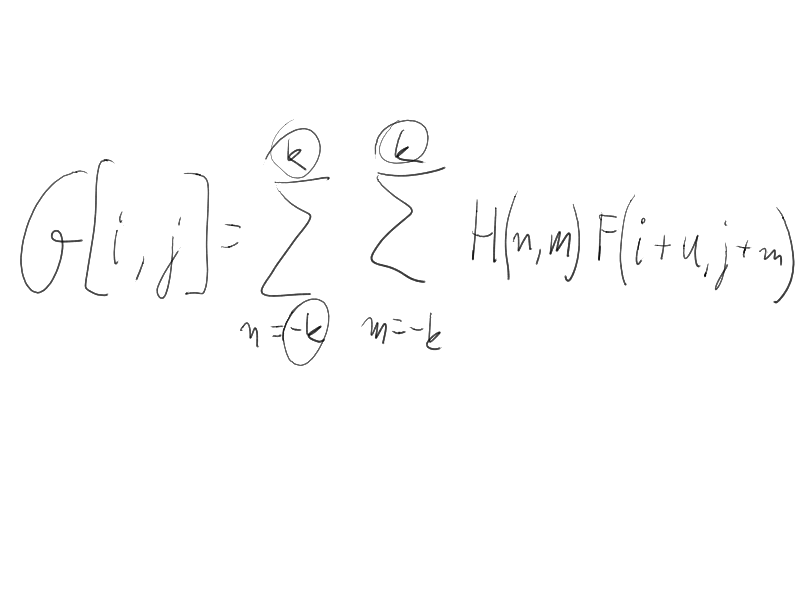 G[i,j] = \sum_{n=-k}^{k} \sum_{m=-k}^{k} H(n,m) F(i+u,j+m)